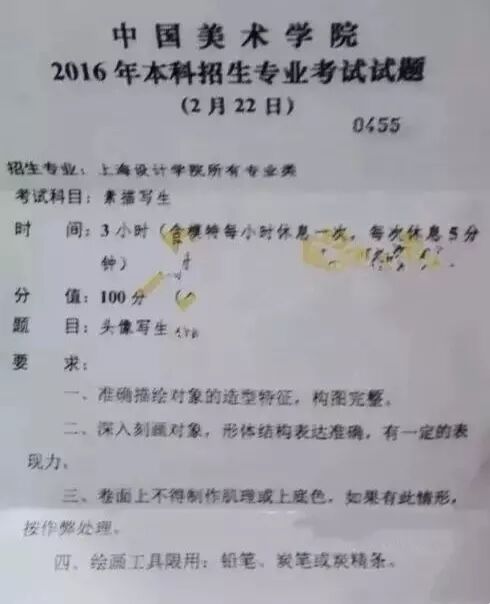 中国美术学院
2016年本科招生专业考试试题
(2月22日)
0455
招生专业：上海设计学院所有专业类
考试科目：素描写生
时　间：3小时（含模特每小时休息一次，每次休息5分
钟）
分　值：100分
题　目：头像写生
要　求：
一、准确描绘对象的造型特征，构图完整。
二、深入刻画对象，形体结构表达准确，有一定的表
现力。
三、卷面上不得制作肌理或上底色，如果有此情形，
按作弊处理。
四、绘画工具限用：铅笔、炭笔或炭精条。